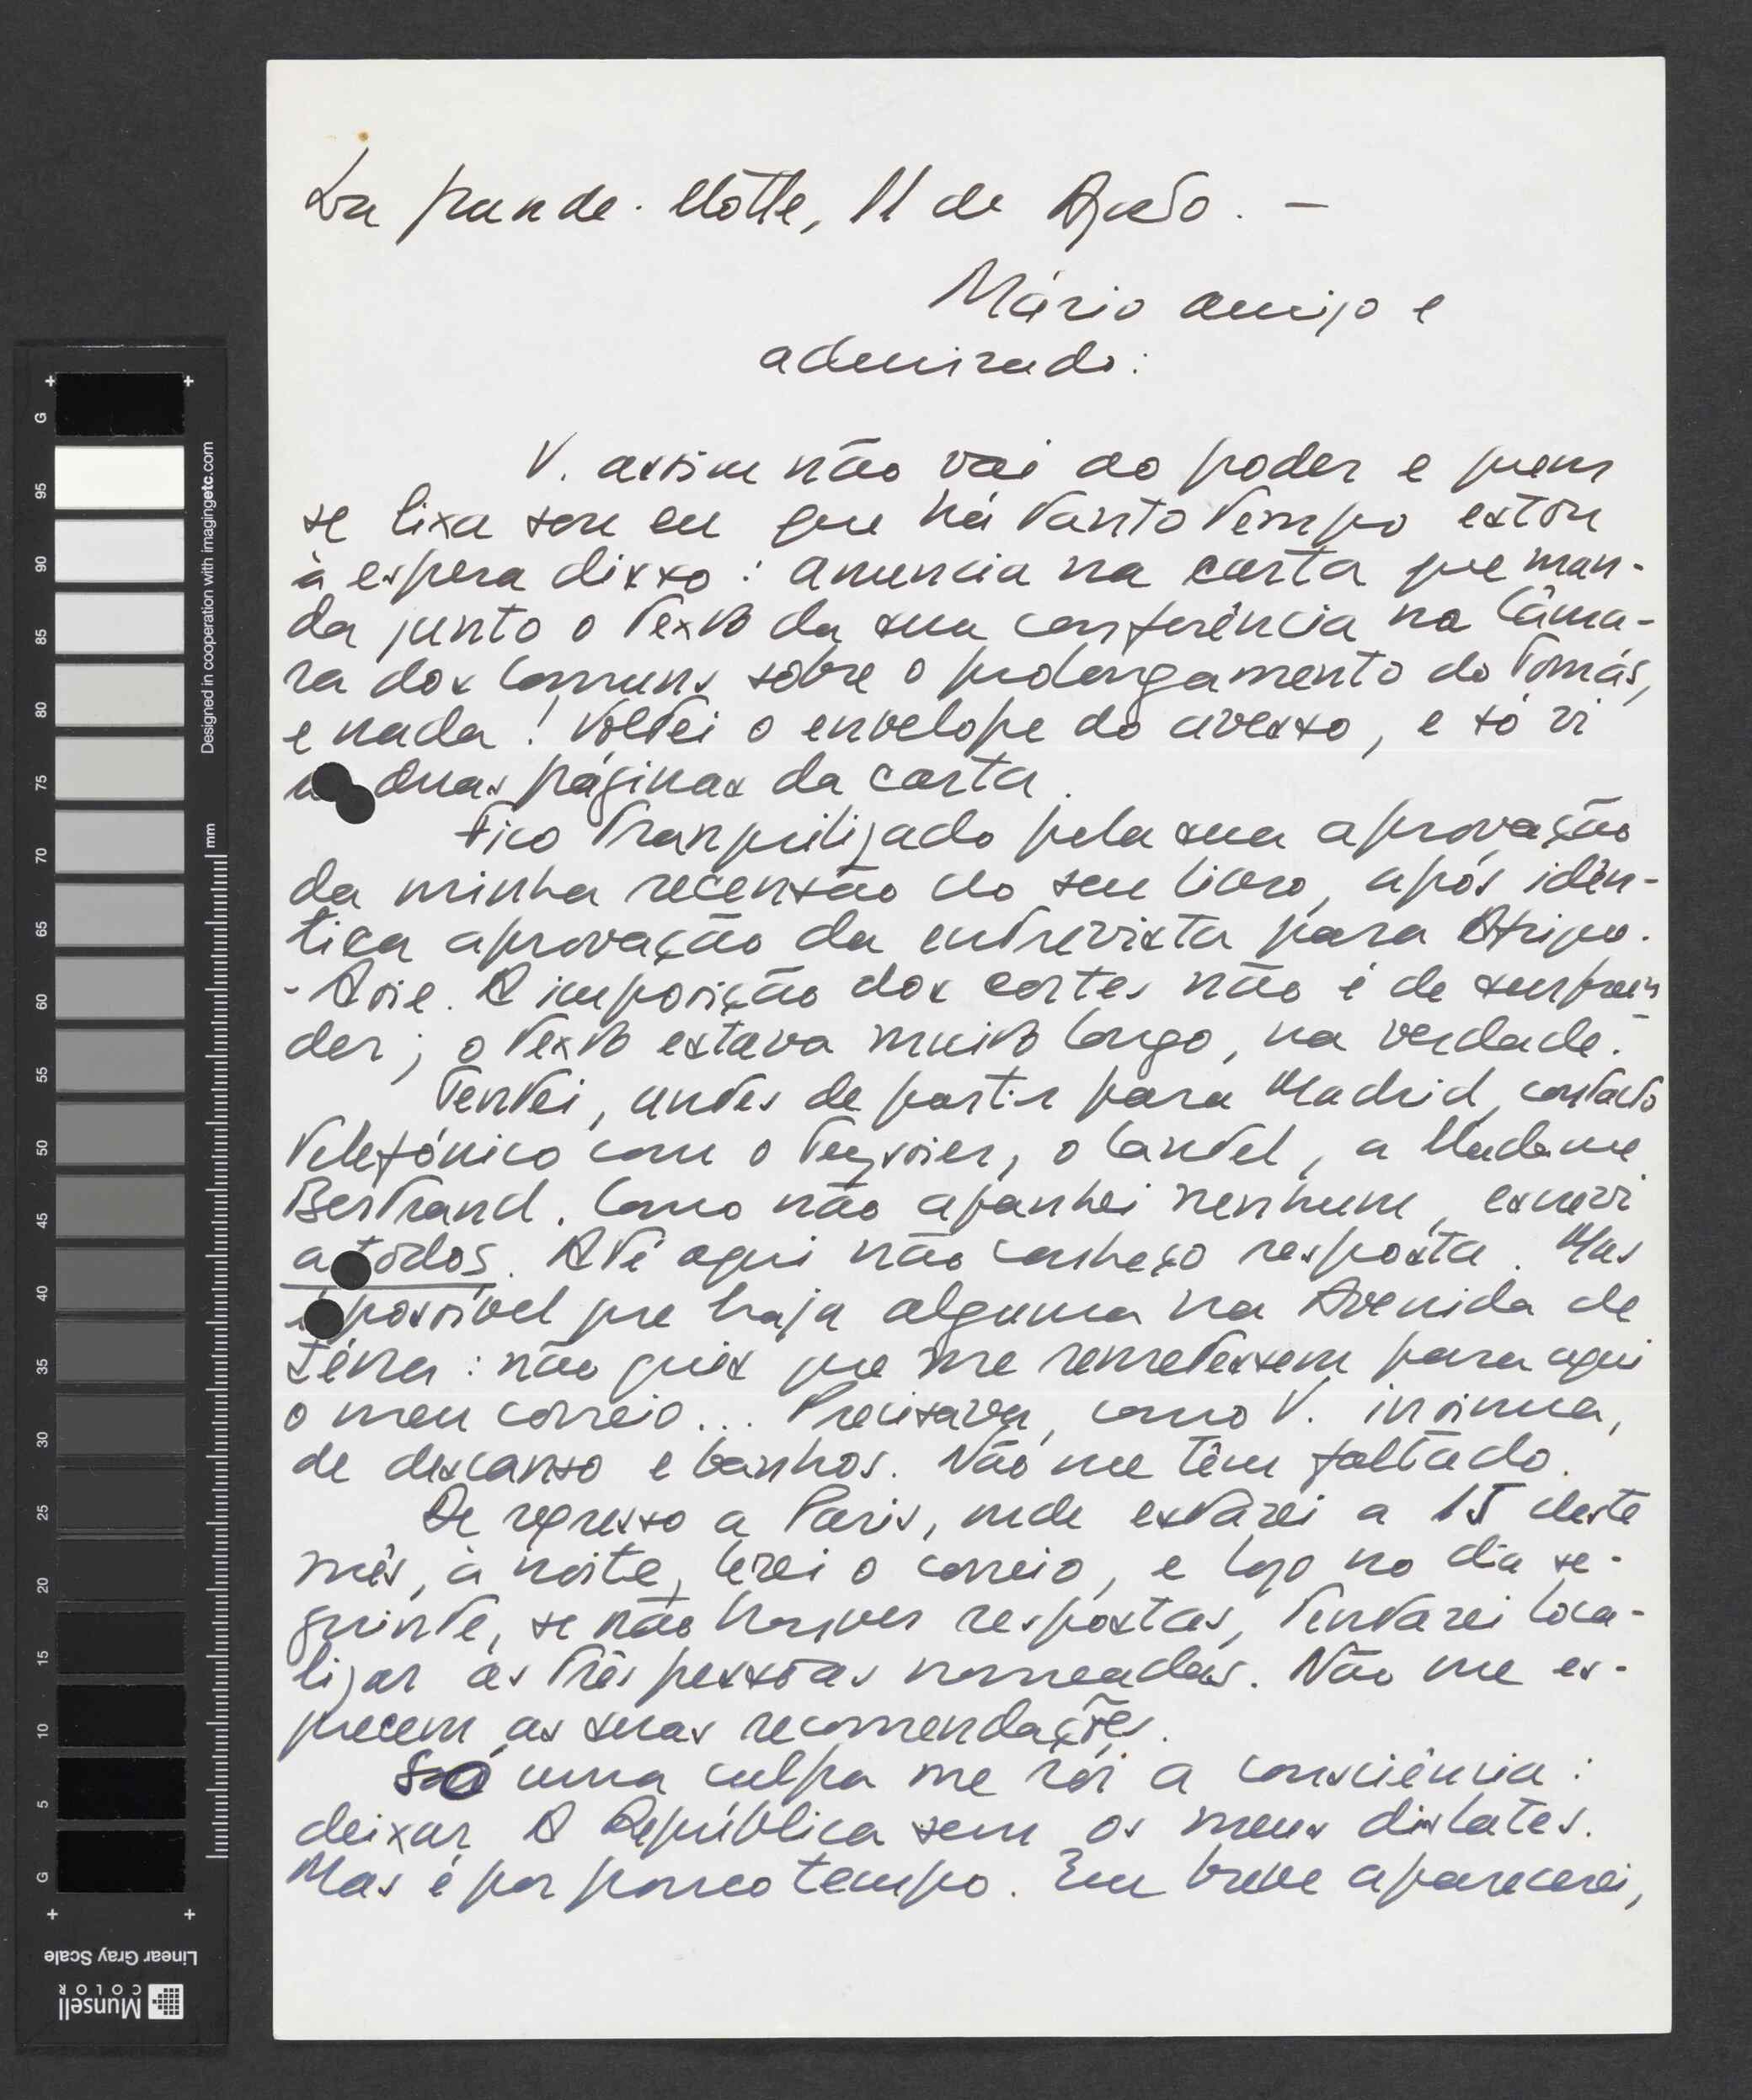 La grande-Motte, 11 de Agosto. -
Mário amigo e
admirado:
V. assim não vai ao poder e quem
se lixa sou eu que há tanto tempo estou
à espera disso: anuncia na carta que man-
da junto o texto da sua conferência na Câma-
ra dos Comuns sobre o prolongamento do Tomás,
e nada! Voltei o envelope do avesso, e só vi
duas páginas da carta.
Fico tranquilizado pela sua aprovação
da minha recensão do seu livro, após idên-
tica aprovação da entrevista para Afrique-
-Asie. A imposição dos cortes não é de surpreen-
der; o texto estava muito longo, na verdade.
Tentei, antes de partir para Madrid, contacto
telefónico com o Teyssier, o Cantel, a Madame
Bertrand. Como não apanhei nenhum, escrevi
a todos. Até aqui não conheço resposta. Mas
é possível que haja alguma na Avenida de
Iéna: não quis que me remetessem para aqui
o meu correio... Precisava, como V. insinua,
de descanso e banhos. Não me têm faltado.
De regresso a Paris, onde estarei a 15 deste
mês, à noite, lerei o correio, e logo no dia se-
guinte, se não houver respostas, tentarei loca-
lizar as três pessoas nomeadas. Não me es-
quecem as suas recomendações.
Só uma culpa me rói a consciência:
deixar A República sem os meus dislates.
Mas é por pouco tempo. Em breve aparecerei,
Designed in cooperation with imagingetc.com
mm
G 95 90 85 80 75 70 65 60 55 50 45 40 35 30 25 20 15 10 5 G
Linear Gray Scale
Munsell
COLOR